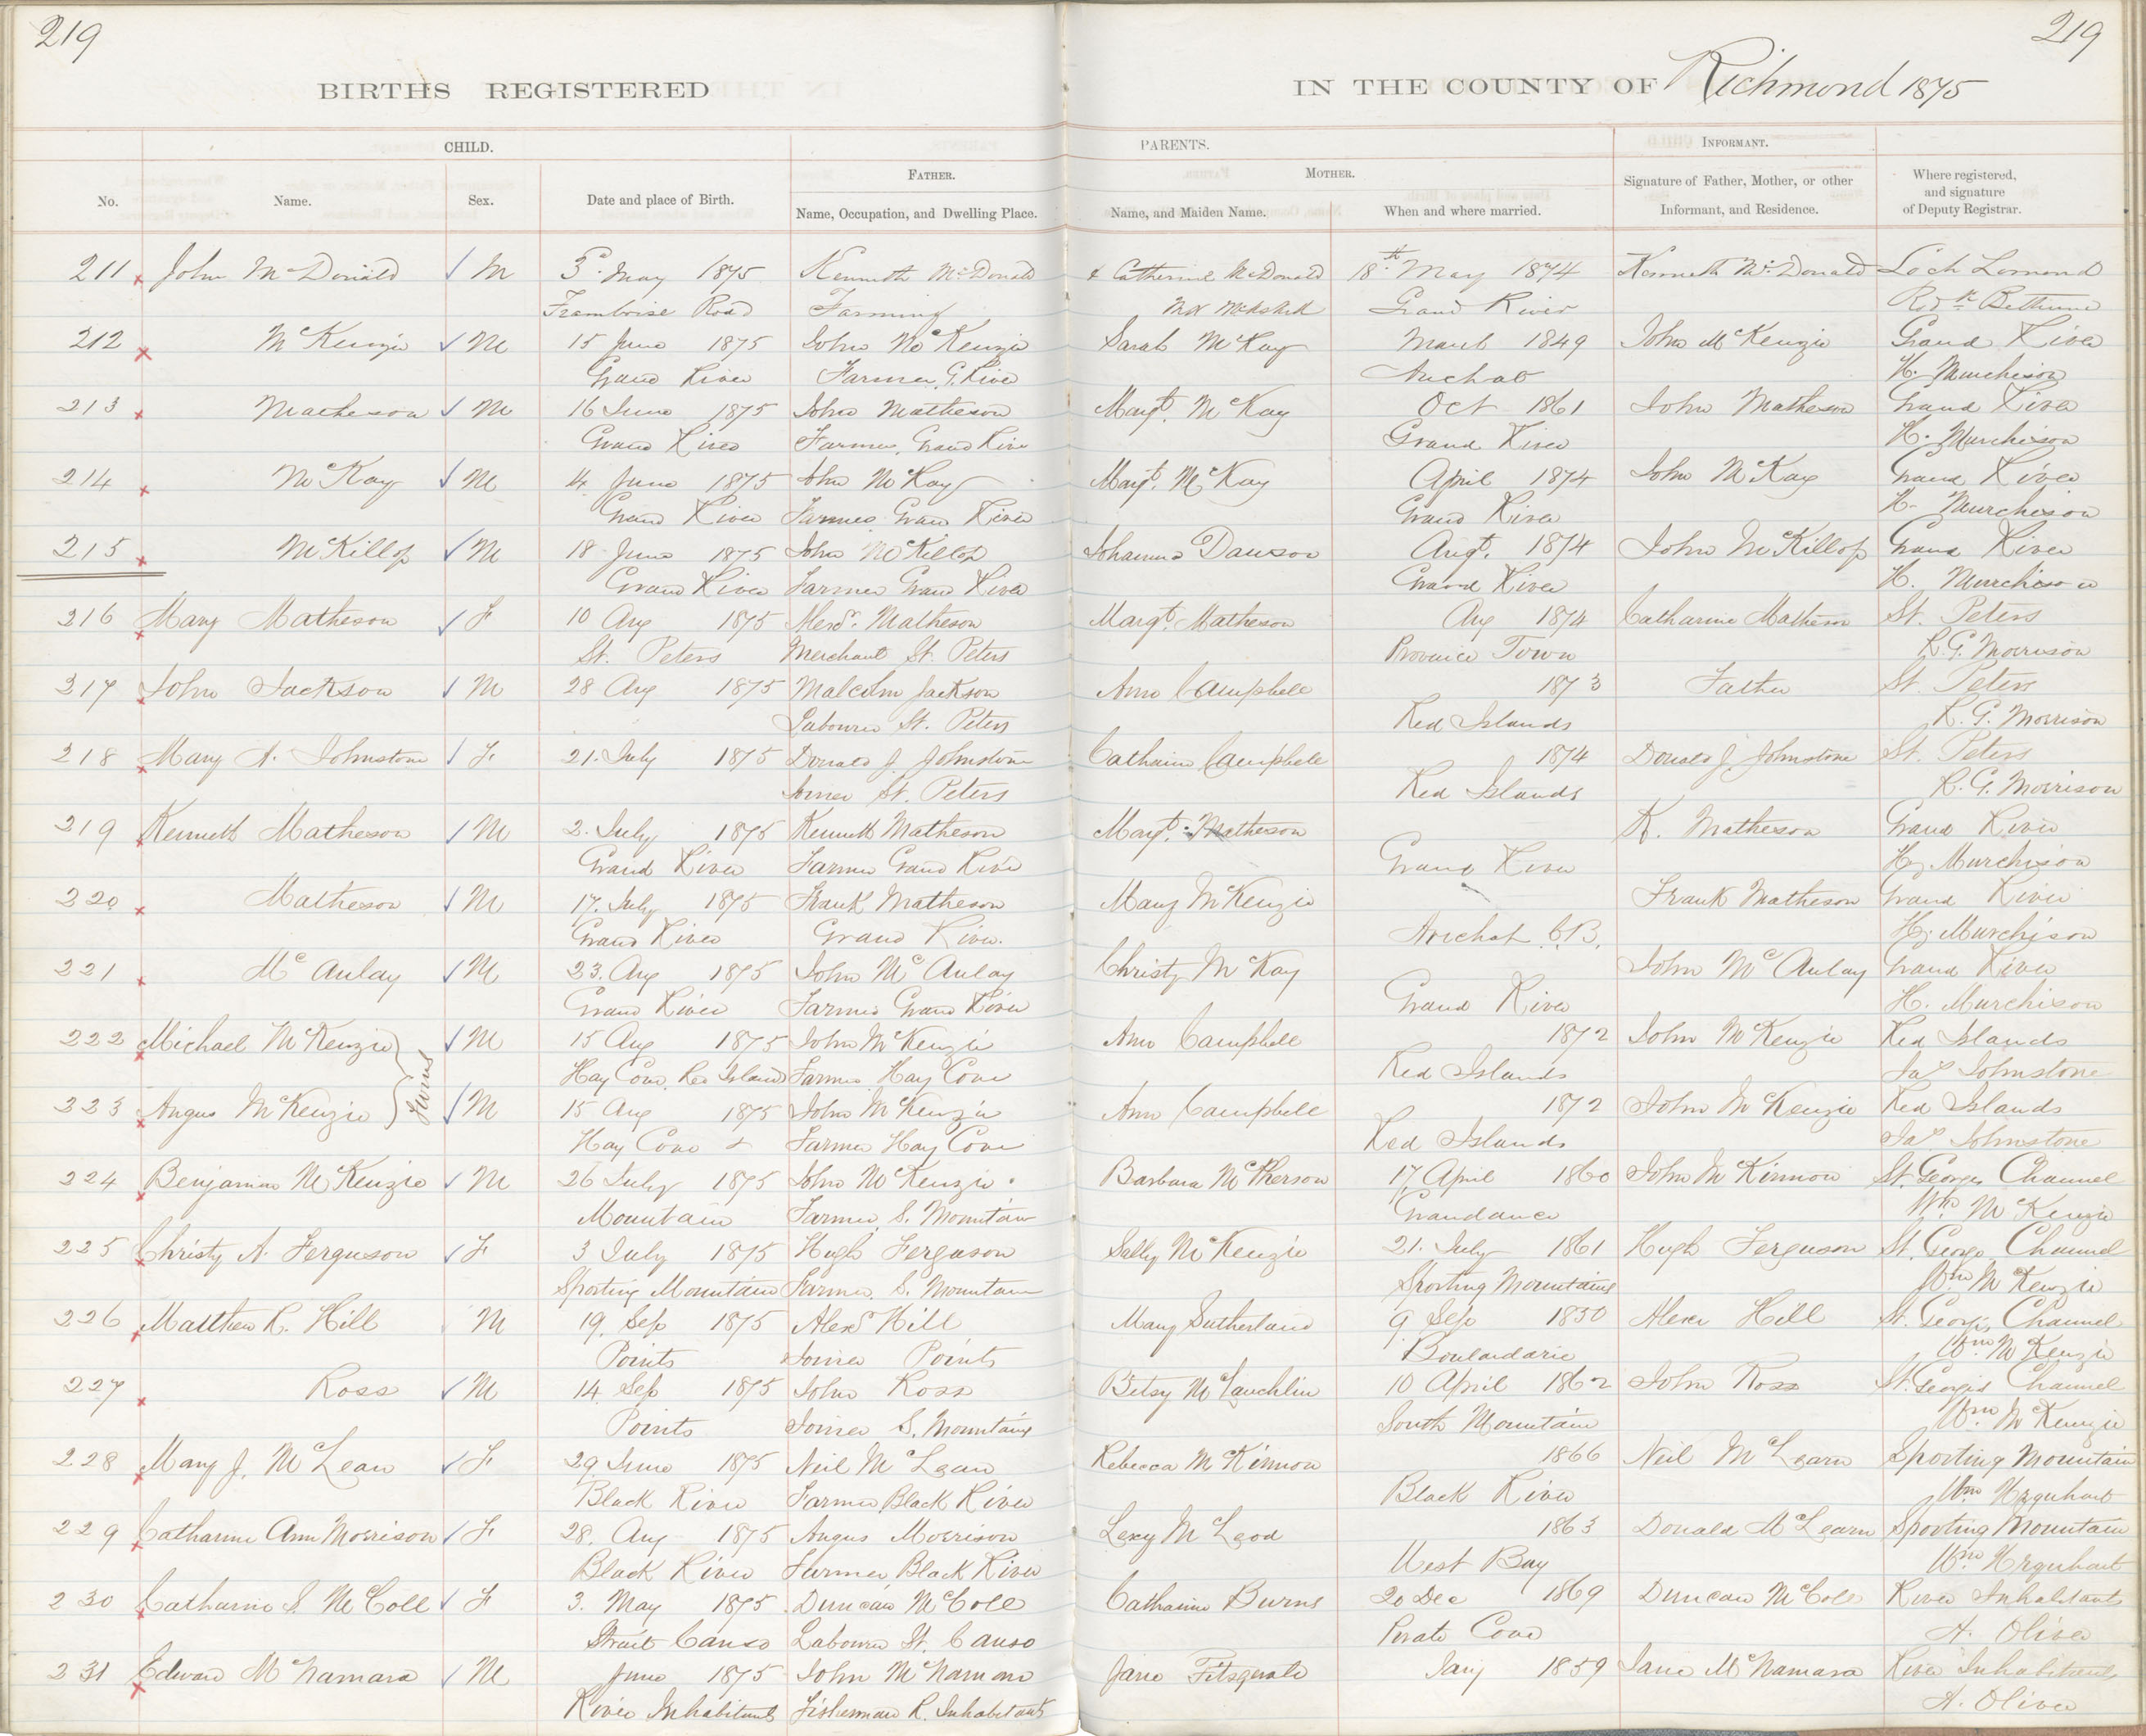 219
219
BIRTHS REGISTERED IN THE COUNTY OF Richmond 1875
CHILD. PARENTS. INFORMANT.
FATHER. MOTHER.
No. Name. Sex. Date and place of Birth. Name, Occupation, and Dwelling Place. Name, and Maiden Name. When and where married. Signature of Father, Mother, or other Informant, and Residence. Where registered, and signature of Deputy Registrar.
211 John McDonald M 3d. May 1875 Kenneth McDonald & Catherine McDonald 18th. May 1874 Kenneth McDonald Loch Lomond
Framboise Road Farming Grand River Rodk Bethune
212 McKenzie M 15 June 1875 John McKenzie Sarah McKay March 1849 John McKenzie Grand River
Grand River Farmer, G. River Arichat H. Murchison
213 Matheson M 16 June 1875 John Matheson Margt. McKay Oct 1861 John Matheson Grand River
Grand River Farmer, Grand River Grand River H. Murchison
214 McKay M 4 June 1875 John McKay Margt. McKay April 1874 John McKay Grand River
Grand River Farmer Grand River Grand River H. Murchison
215 McKillop M 18 June 1875 John McKillop Johanna Dawson Augt. 1874 John McKillop Grand River
Grand River Farmer Grand River Grand River H. Murchison
216 Mary Matheson F 10 Aug 1875 Matheson Margt. Matheson Aug 1874 Catharine Matheson St. Peters
St. Peters Merchant St. Peters Province Town R. G. Morrison
217 John Jackson M 28 Aug 1875 Malcolm Jackson Ann Campbell 1873 Father St. Peters
Labourer St. Peters Red Islands R. G. Morrison
218 Mary A. Johnstone F 21. July 1875 Donald J. Johnstone Catharine Campbell 1874 Donald J. Johnstone St. Peters
Joiner St. Peters Red Islands R. G. Morrison
219 Kenneth Matheson M 2. July 1875 Kenneth Matheson Margt. Matheson K. Matheson Grand River
Grand River Farmer Grand River Grand River H. Murchison
220 Matheson M 17. July 1875 Frank Matheson Mary McKenzie Frank Matheson Grand River
Grand River Grand River. Arichat C.B. H. Murchison
221 McAulay M 23. Aug 1875 John McAulay Christy McKay John McAulay Grand River
Grand River Farmer Grand River Grand River H. Murchison
222 Michael McKenzie } Twins M 15 Aug 1875 John McKenzie Ann Campbell 1872 John McKenzie Red Islands
Hay Cove, Red Islands Farmer Hay Cove Red Islands Jas Johnstone
223 Angus McKenzie M 15 Aug 1875 John McKenzie Ann Campbell 1872 John McKenzie Red Islands
Hay Cove Farmer Hay Cove Red Islands Jas Johnstone
224 Benjamin McKenzie M 26 July 1875 John McKenzie Barbara McPherson 17 April 1860 John McKinnon St. Georges Channel
Mountain Farmer, S. Mountain Grandance Wm McKenzie
225 Christy A. Ferguson F 3 July 1875 Hugh Ferguson Sally McKenzie 21. July 1861 Hugh Ferguson St. George Channel
Sporting Mountain Farmer, S. Mountain Sporting Mountains Wm McKenzie
226 Matthew R. Hill M 19. Sep 1875 Alexr Hill Mary Sutherland 9 Sep 1850 Alexr Hill St. Georges Channel
Points Joiner Points Boulardarie Wm McKenzie
227 Ross M 14 Sep 1875 John Ross Betsy McLauchlin 10 April 1862 John Ross St. Georges Channel
Points Joiner S. Mountain South Mountain Wm McKenzie
228 Mary J. McLean F 29 June 1875 Neil McLean Rebecca McKinnon 1866 Neil McLearn Sporting Mountain
Black River Farmer Black River Black River Wm Urquhart
229 Catharine Ann Morrison F 28. Aug 1875 Angus Morrison Lexy McLeod 1863 Donald McLearn Sporting Mountain
Black River Farmer, Black River West Bay Wm Urquhart
230 Catharine J. McColl F 3. May 1875 Duncan McColl Catharine Burns 20 Dec 1869 Duncan McColl River Inhabitants
Strait Canso Labourer St. Canso Pirate Cove A. Oliver
231 Edward McNamara M June 1875 John McNamara Jane Fitzgerald Jany 1859 Jane McNamara River Inhabitants
River Inhabitants Fisherman R. Inhabitants A. Oliver